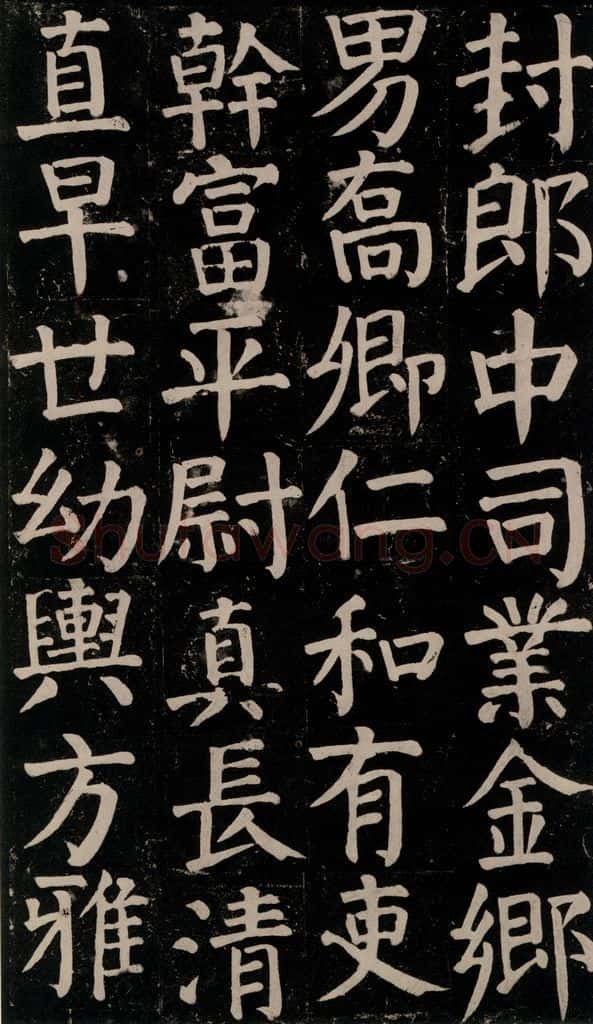 封郎中司業金鄉
男喬卿仁和有吏
幹富平尉真長清
直早世幼輿方雅
Shufawang.CN